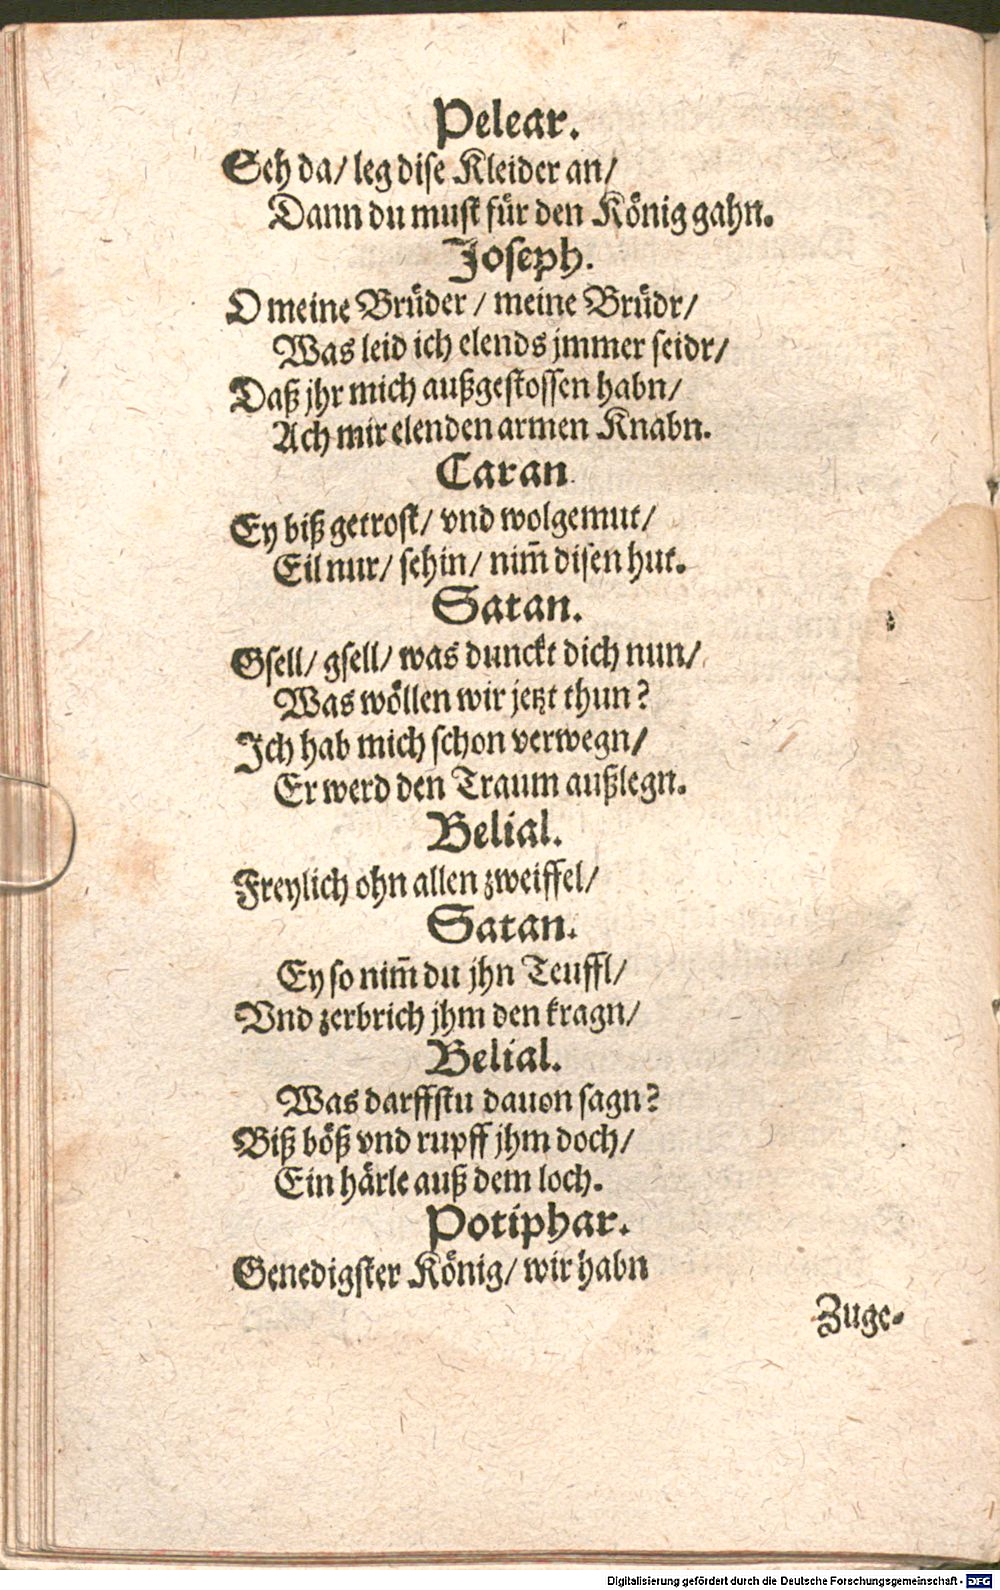 Pelear.
Seh da/ leg dise Kleider an/
Dann du must für den König gahn.
Joseph.
O meine Brüder / meine Brüdr/
Was leid ich elends jmmer seidr/
Daß jhr mich außgestossen habn/
Ach mir elenden armen Knabn.
Caran
Ey biß getrost/ vnd wolgemut/
Eil nur/ sehin/ nim̃ disen hut.
Satan.
Gsell/ gsell/ was dunckt dich nun/
Was wöllen wir jetzt thun?
Ich hab mich schon verwegn/
Er werd den Traum außlegn.
Belial.
Freylich ohn allen zweiffel/
Satan.
Ey so nim̃ du jhn Teuffl/
Vnd zerbrich jhm den kragn/
Belial.
Was darffstu dauon sagn?
Biß böß vnd rupff jhm doch/
Ein härle auß dem loch.
Potiphar.
Genedigster König/ wir habn
Zuge-
Digitalisierung gefördert durch die Deutsche Forschungsgemeinschaft - DFG